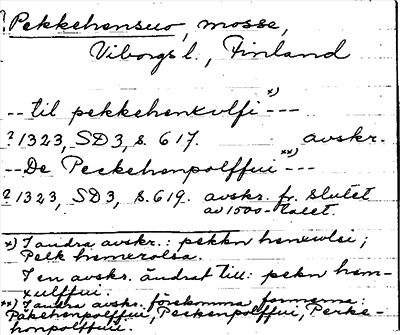 ? Pekkehensuo, mosse,
Viborgs l., Finland
-- til pekkehenkulfi x) ---
? 1323, SD3, s. 617. avskr.
-- De Peckehenpolffui xx) ---
? 1323, SD3, s. 619. avskr. fr. slutet
av 1500-talet.
x) I andra avskr.: pekkn henewlsi;
Pelk hemerolsa.
I en avskr. ändrat till: pekn hem-
kulffui.
xx) I andra avskr. förekomma formerna:
Päkehenpolffui, Peskenpolffui, Perke-
henpolffuii.